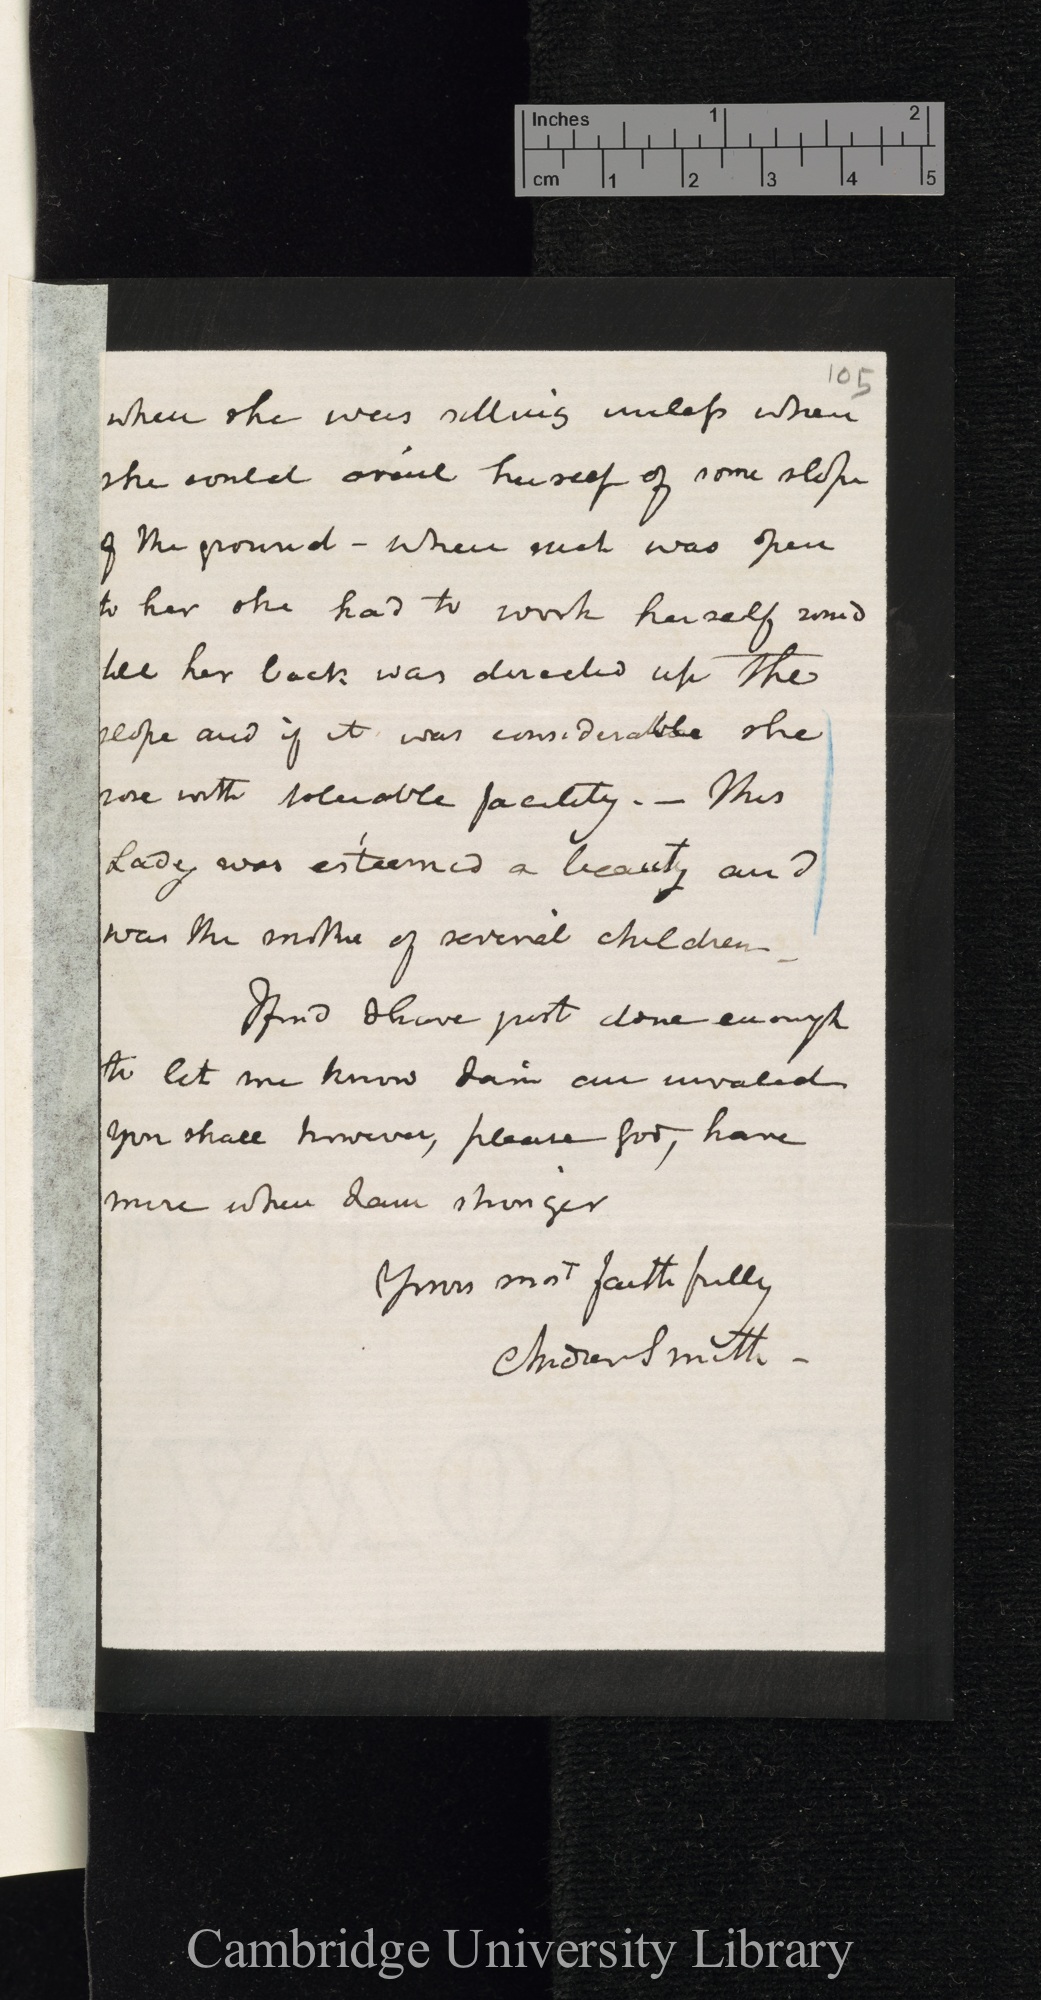 Inches 1 2
cm 1 2 3 4 5
105
when she was sitting unless when
she could avail herself of some slope
of the ground – when such was open
to her she had to work herself round
till her back was directed up the
slope and if it was considerable she
rose with tolerable facility. — This
Lady was esteemed a beauty and
was the mother of several children –
I find I have just done enough
to let me know I am an invalid
you shall however, please God, have
more when I am stronger
Yours most faithfully
Andrew Smith –
Cambridge University Library